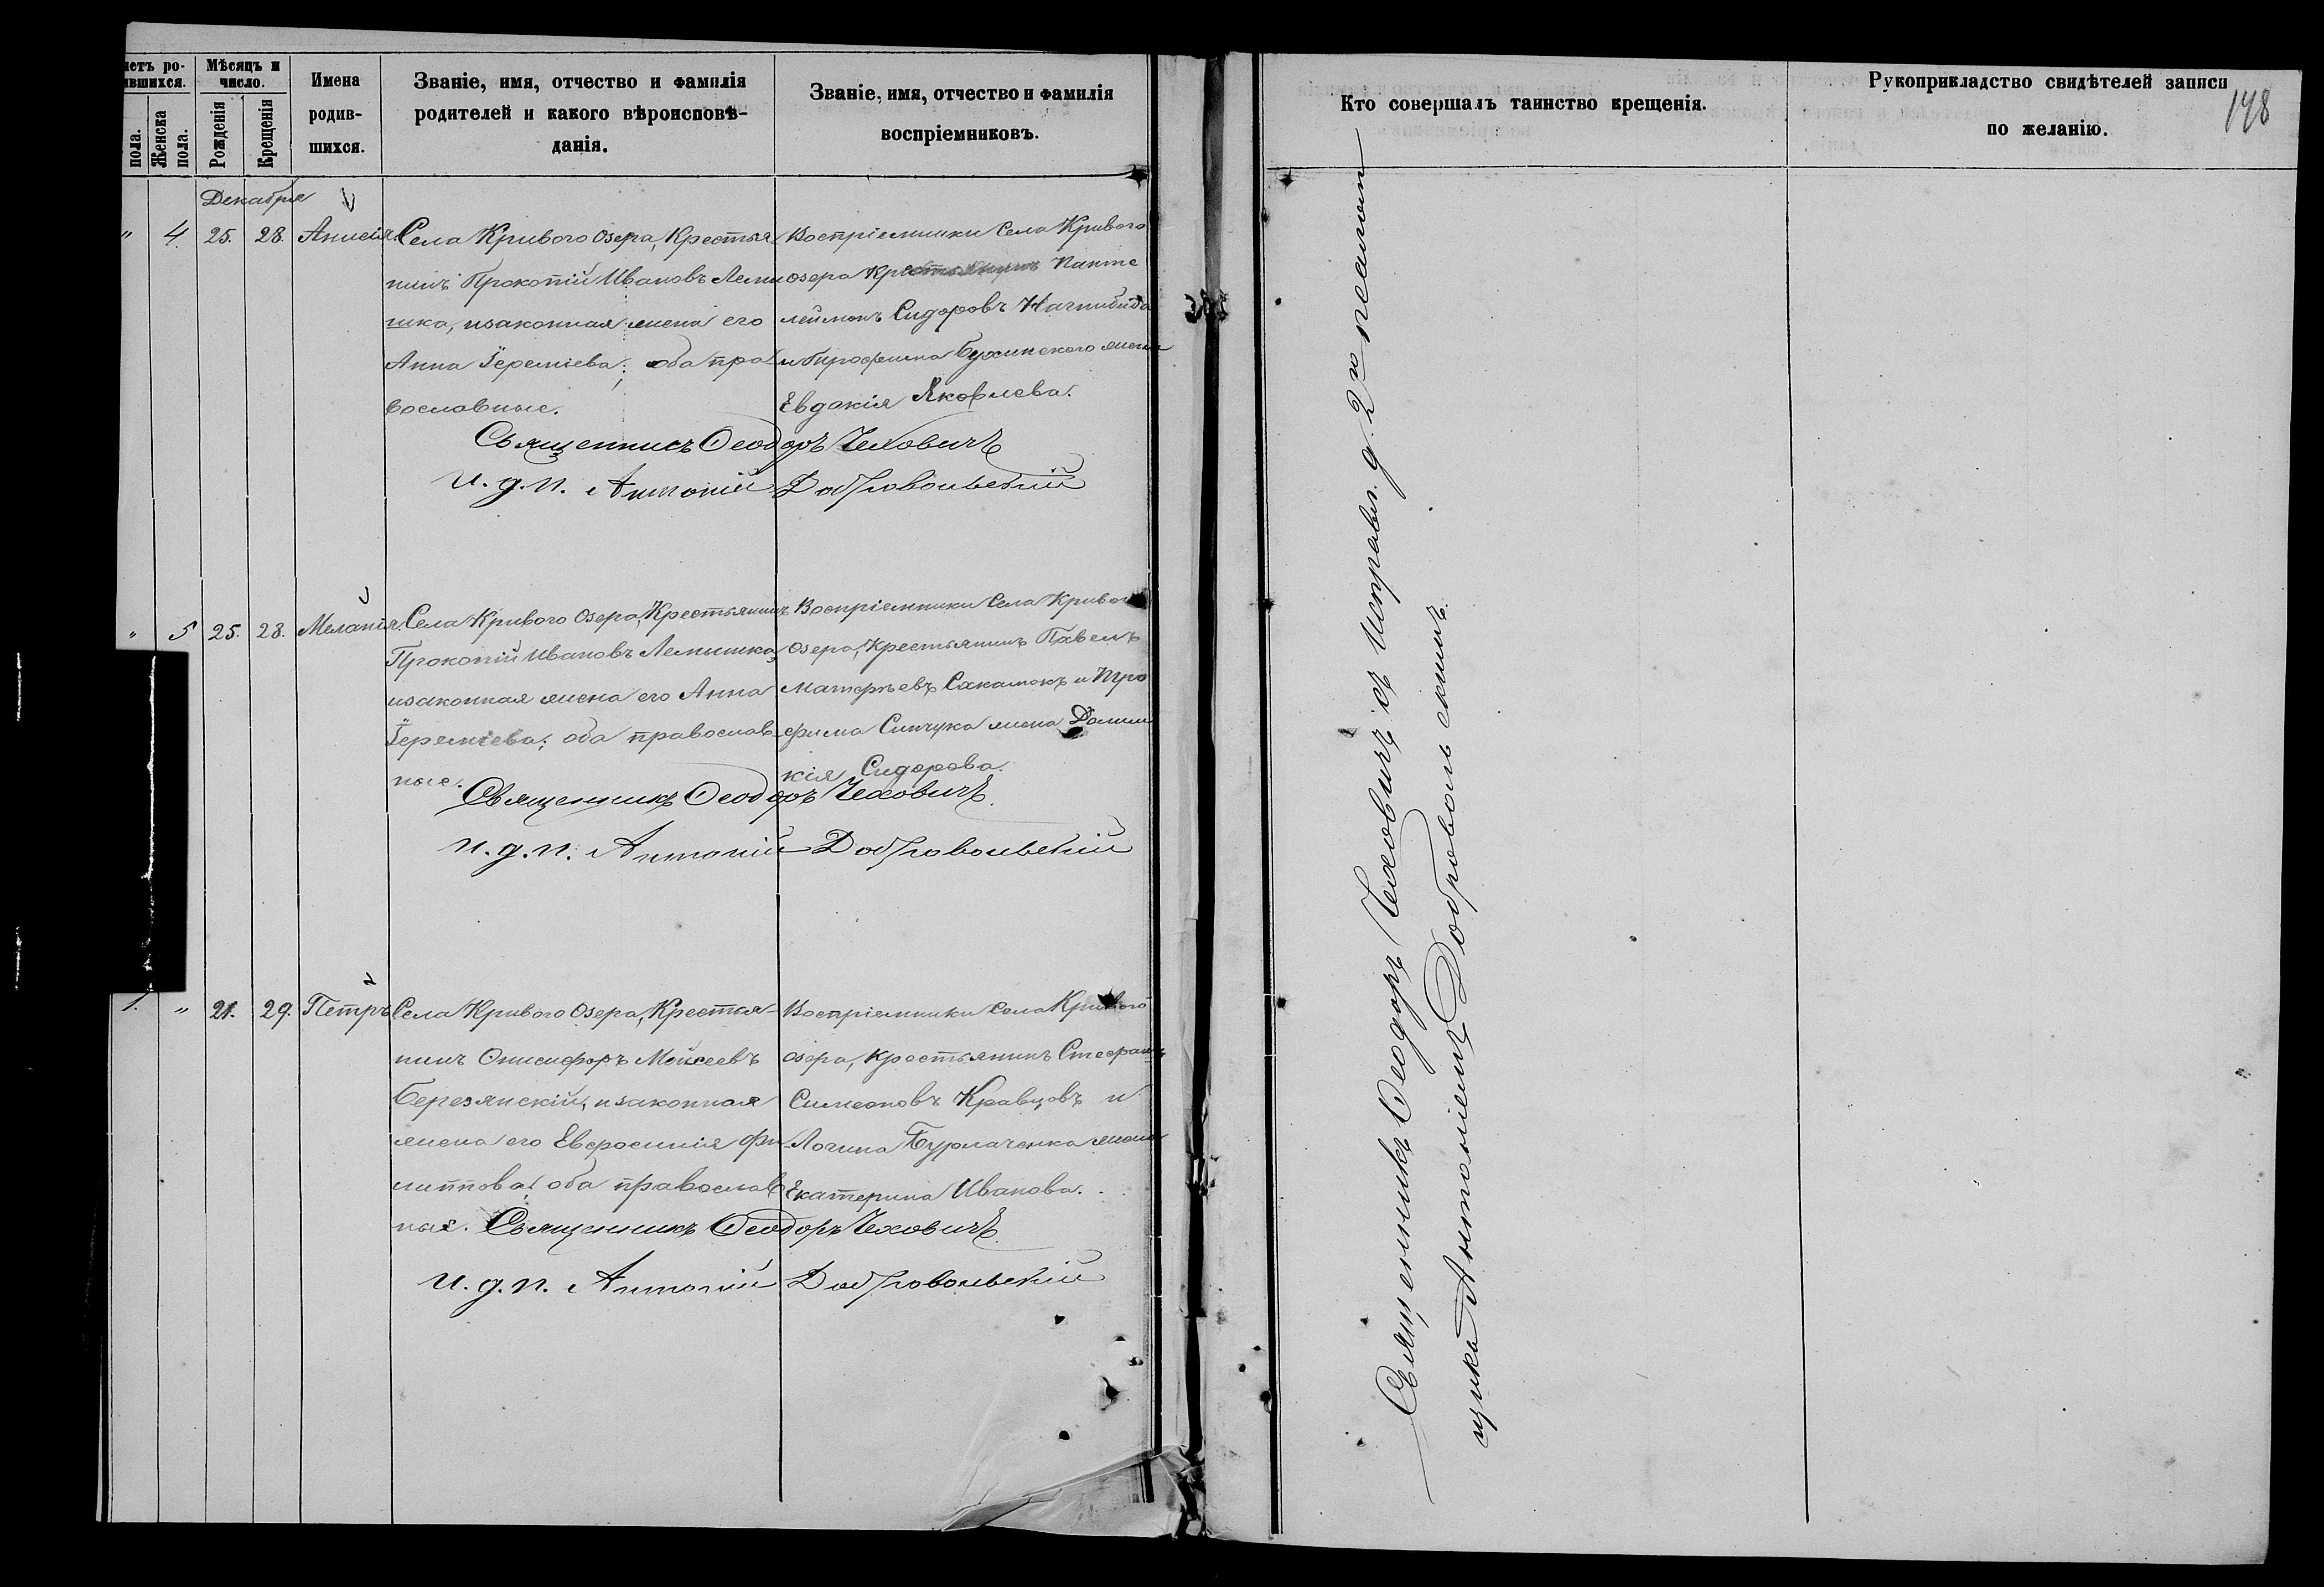 четъ ро-
ившихся.
пола.
Женска
пола.
Мѣсяцъ и
число.
Рожденія
Крещенія
Имена
родив-
шихся.
Званіе, имя, отчество и фамилія
родителей и какого вѣроисповѣ-
данія.
Званіе, имя, отчество и фамилія
воспріемниковъ.
Кто совершалъ таинство крещенія.
Рукоприкладство свидѣтелей записи
по желанію.
148
Декабря
" 4 25. 28. Анисія.
Села Кривого Озера, Крестья
нинъ Прокопій Ивановъ Леми
шка, изаконная жена его
Анна Іереміева; оба пра-
вославные.
Воспріемники Села Кривого
озера Крестьянинъ Панте
леймонъ Сидоровъ Нагнибида
и Трофима Бухинского жена
Евдокія Яковлева.
Священникъ Ѳеодоръ Чеховичъ
И. д. п. Антоній Добровольскій
" 5 25. 28. Меланія.
Села Кривого Озера, Крестьянинъ
Прокопій Ивановъ Лемишка,
изаконная жена его Анна
Іереміева; оба православ-
ные.
Воспріемники Села Кривого
Озера, Крестьянинъ Павелъ
Матфѣевъ и Тро
фима жена Домни
кія Сидорова.
Священникъ Ѳеодоръ Чеховичъ.
И. д. п. Антоній Добровольскій
1. " 21. 29. Петръ
Села Кривого Озера, Крестья-
нинъ Онисифоръ Моисеевъ
Березянскій, изаконная
жена его Евфросинія Фи-
липпова; оба православ
ные.
Воспріемники Села Кривого
озера, Крестьянинъ Стефанъ
Симеоновъ Кравцовъ и
Логина Бурлаченка жена
Екатерина Иванова.
Священникъ Ѳеодоръ Чеховичъ.
И. д. п. Антоній Добровольскій
Священникъ Ѳеодоръ Чеховичъ съ Исправл. д. 2го псалом
щика Антоніемъ Добровольскимъ.